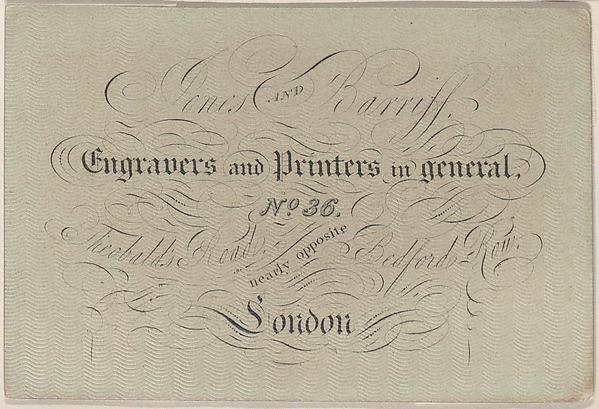 Jones AND Barriff,
Engravers and Printers in general,
Nº 36.
Theobalds Road, nearly opposite Bedford Row.
London